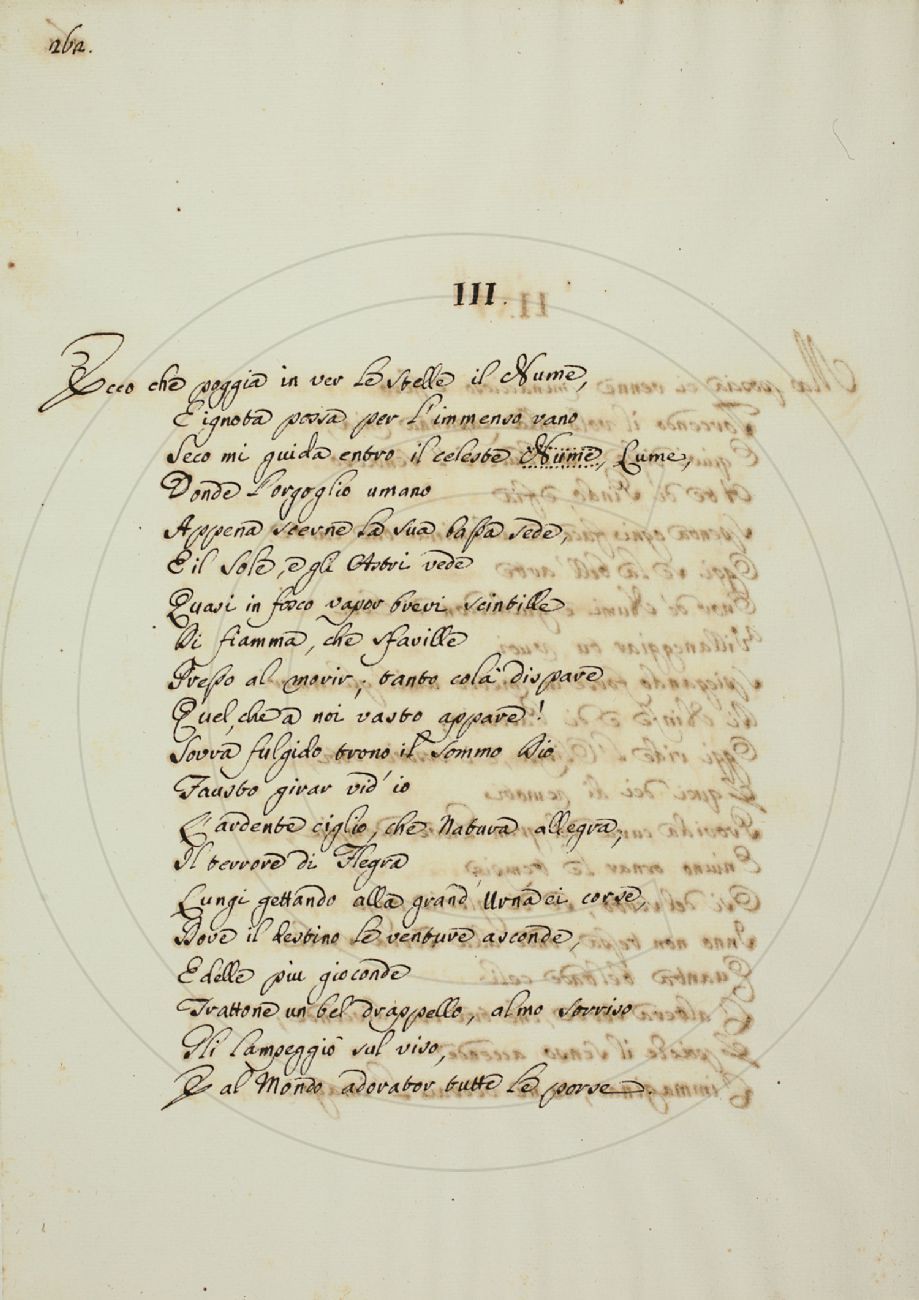 262.
III.
Ecco che poggia in ver le stelle il Nume,
E ignota possa per l'immenso vano
Seco mi guida entro il celeste Nume, Lume,
Donde l'orgoglio umano
Appena scerne la sua bassa sede,
E il Sole, e gli Astri vede
Quasi in fosco vapor brevi scintille
Di fiamma, che sfaville
Presso al morir; tanto colà dispare
Quel, che a noi vasto appare!
Sovra fulgido trono il Sommo Dio
Fausto girar vid' io
L'ardente ciglio, che Natura allegra,
Il terrore di Flegra
Lungi gettando alla grand' Urna ei corse,
Dove il destino le venture asconde,
E delle più gioconde
Trattone un bel drappello, almo sorriso
Gli lampeggiò sul viso,
E al Mondo adorator tutte le porse.